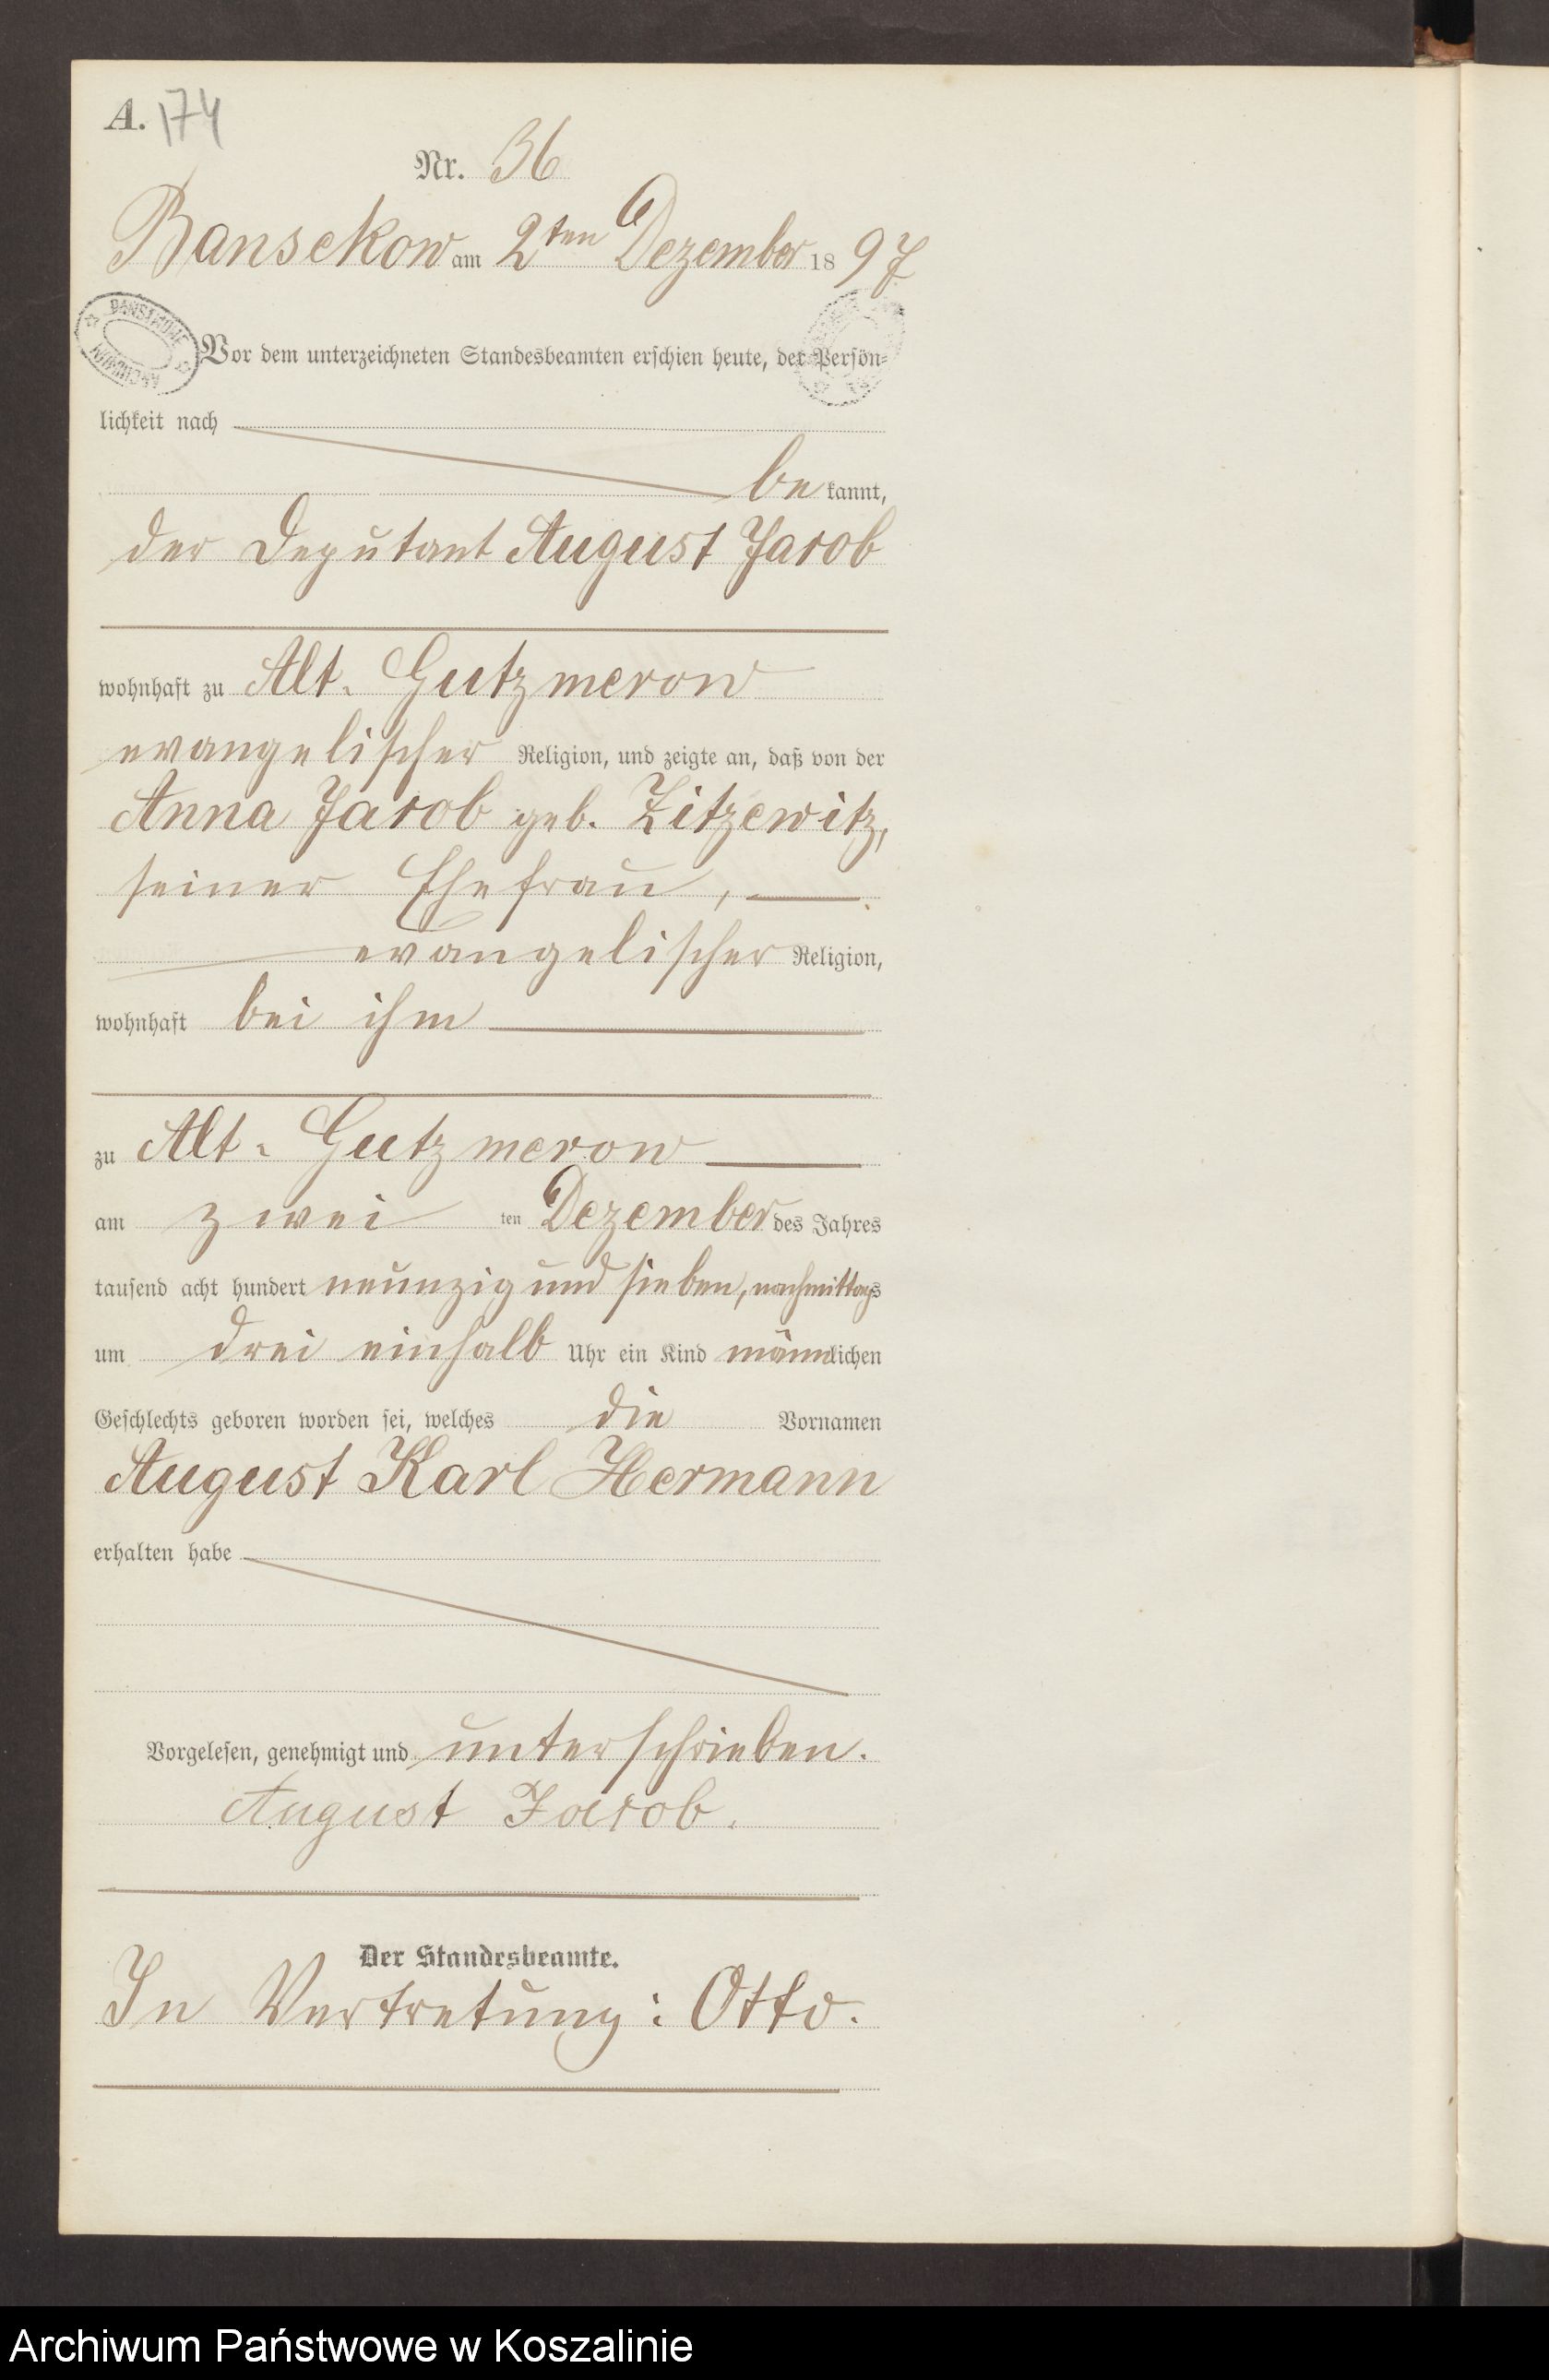 A. 174
Nr. 36
Bansekow am 2ten Dezember 1897
PAŃSTWOWE ARCHIWUM
Vor dem unterzeichneten Standesbeamten erschien heute, der Persön-
lichkeit nach
be kannt,
der Deputant August Jarob
wohnhaft zu Alt. Gutzmerow
evangelischer Religion, und zeigte an, daß von der
Anna Jarob geb. Zitzewitz,
seiner Ehefrau,
evangelischer Religion,
wohnhaft bei ihm
zu Alt. Gutzmerow
am zwei ten Dezember des Jahres
tausend acht hundert neunzig und sieben, nachmittags
um drei einhalb Uhr ein Kind männlichen
Geschlechts geboren worden sei, welches die Vornamen
August Karl Hermann
erhalten habe
Vorgelesen, genehmigt und unterschrieben.
August Jarob.
Der Standesbeamte.
In Vertretung: Otto.
Archiwum Państwowe w Koszalinie